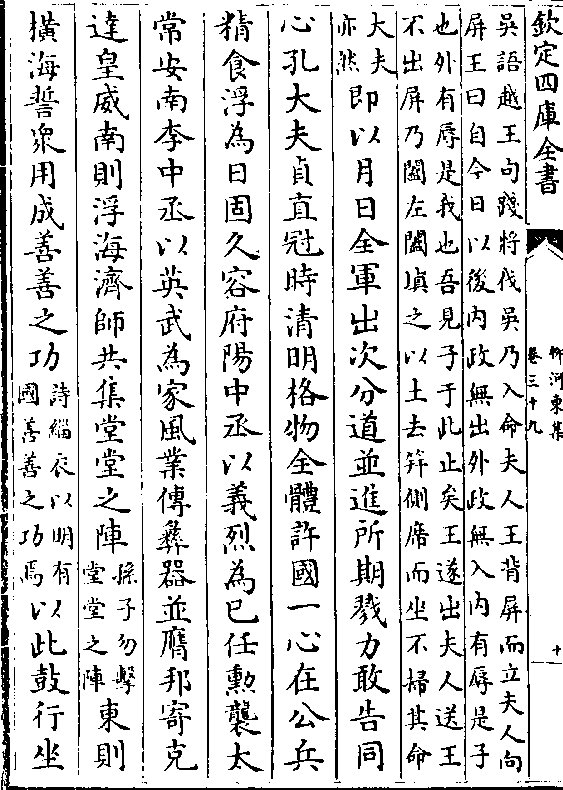 欽定四庫全書
柳河東集
卷三十九
十
吳語越王句踐將伐吳乃入命夫人王背屏而立夫人向
屏王曰自今日以後内政無出外政無入内有辱是子
也外有辱是我也吾見子于此止矣王遂出夫人送王
不出屏乃闔左闔填之以土去笄側席而坐不掃其命
大夫
亦然
即以月日全軍出次分道並進所期戮力敢告同
心孔大夫貞直冠時清明格物全體許國一心在公兵
精食浮為日固久容府陽中丞以義烈為已任勲襲太
常安南李中丞以英武為家風業傳彝器並膺邦寄克
達皇威南則浮海濟師共集堂堂之陣
孫子勿擊
堂堂之陣
東則
橫海誓衆用成善善之功
詩緇衣以明有
國善善之功焉
以此鼓行坐